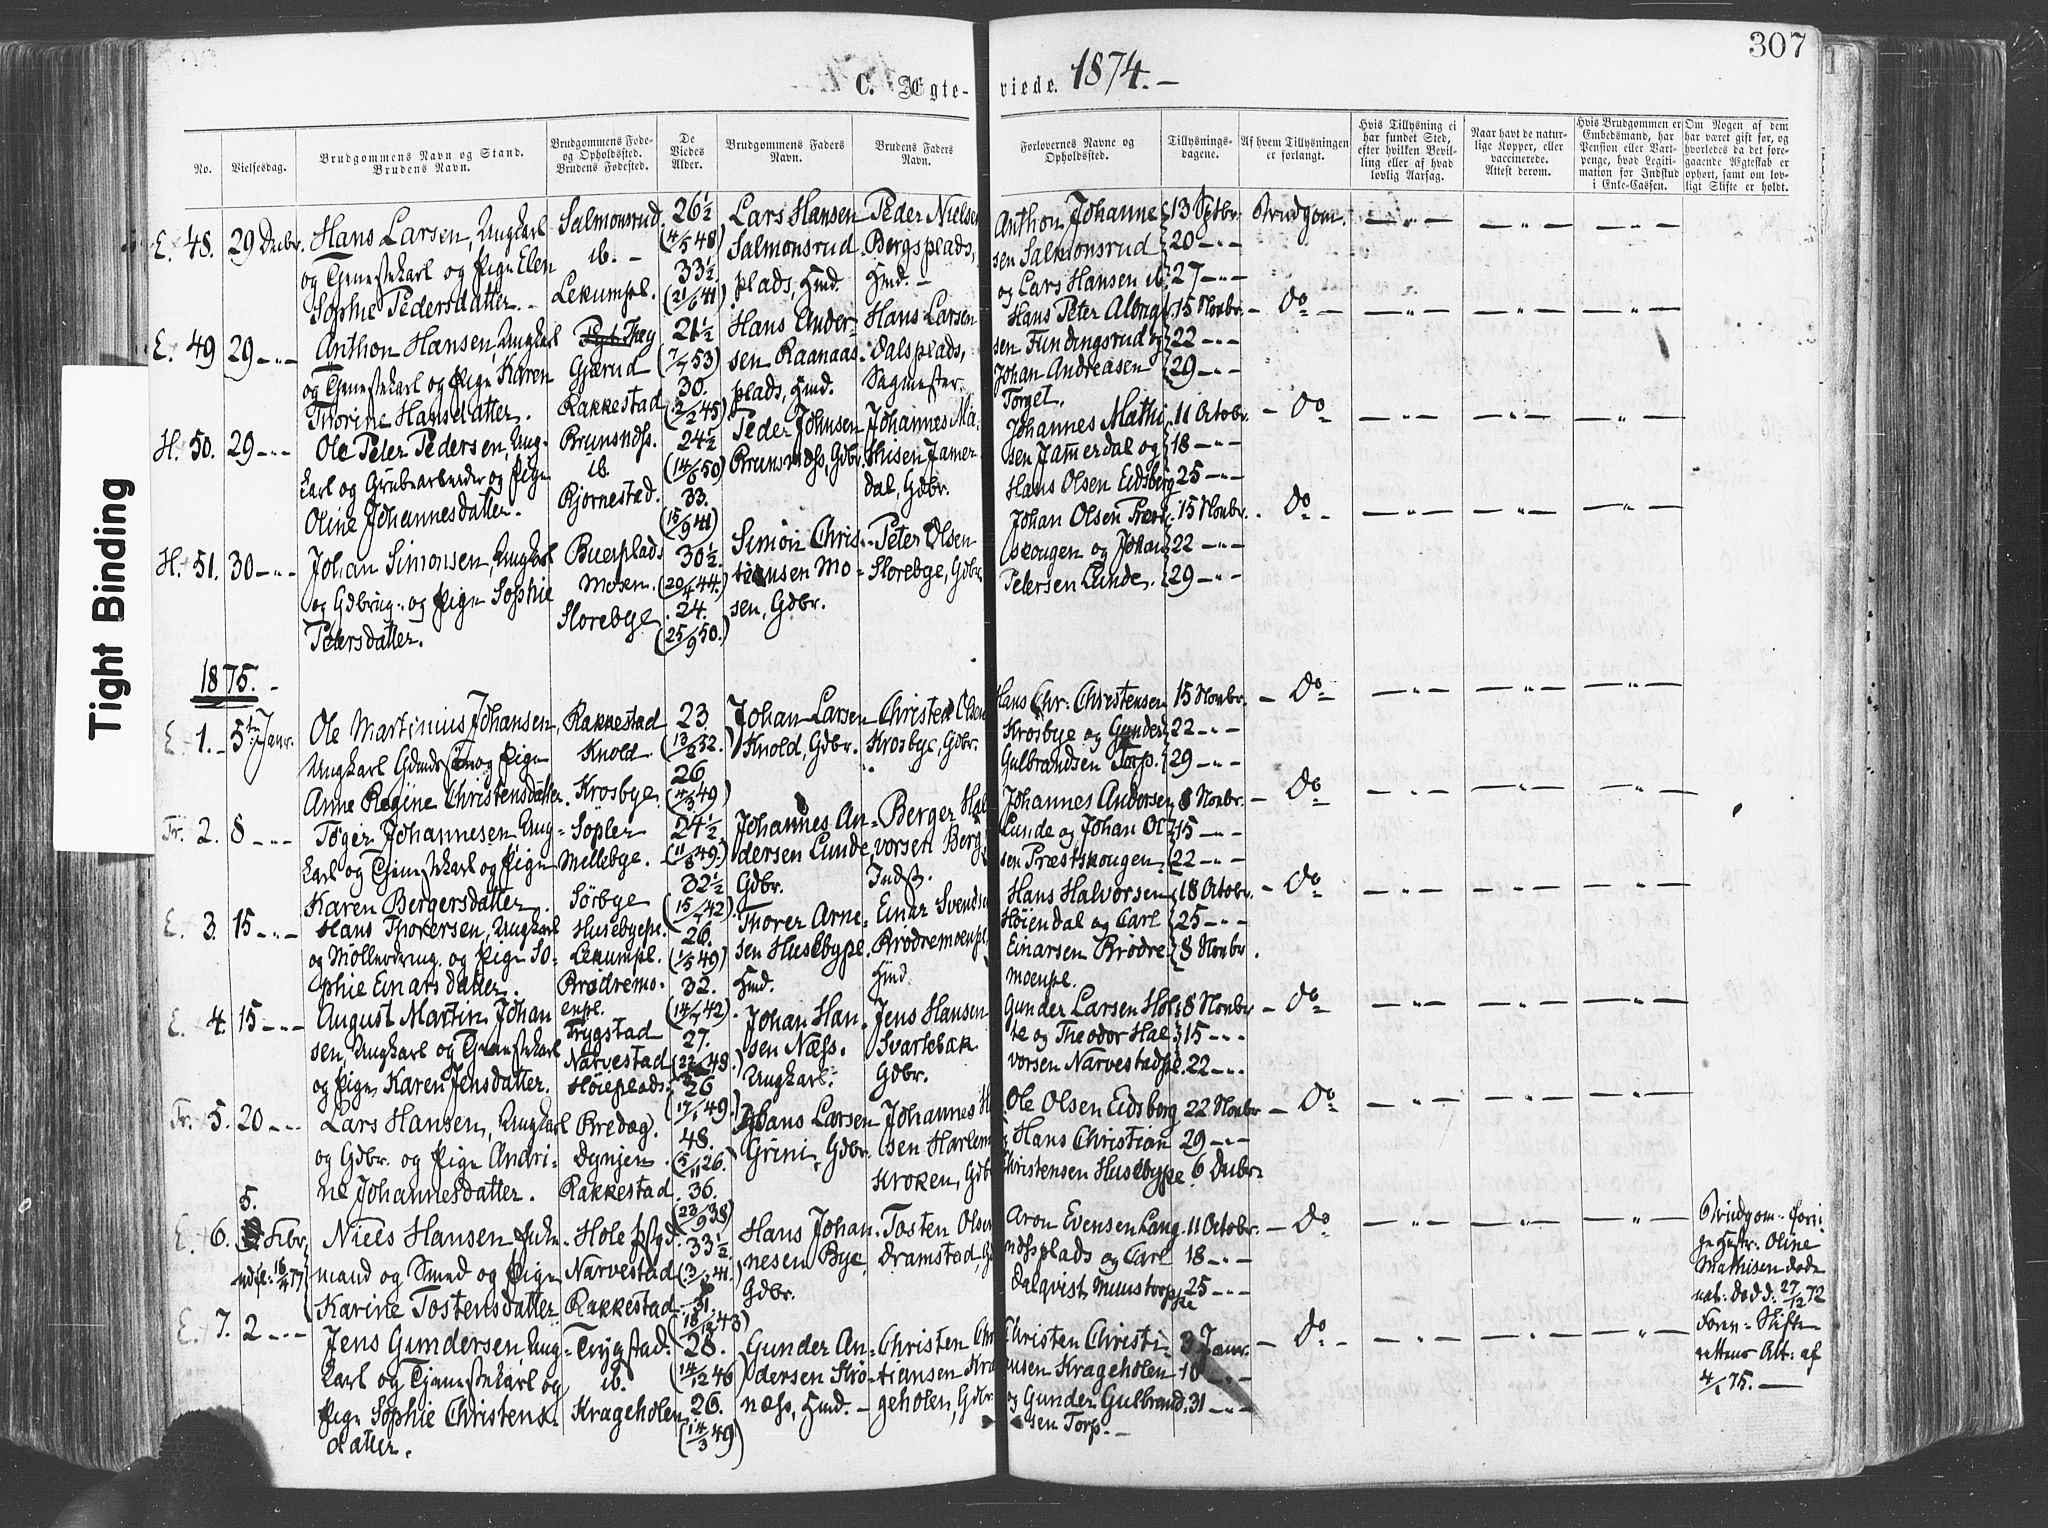 307
C. Ægte-viede. 1874. –
No.
Vielsesdag.
Brudgommens Navn og Stand.
Brudens Navn.
Brudgommens Føde-
og Opholdssted.
Brudens Fødested.
De
Viedes
Alder.
Brudgommens Faders
Navn.
Brudens Faders
Navn.
Forlovernes Navne og
Opholdssted.
Tillysnings-
dagene.
Af hvem Tillysningen
er forlangt.
Hvis Tillysning ei
har fundet Sted,
efter hvilken Bevil-
ling eller af hvad
lovlig Aarsag.
Naar havt de natur-
lige Kopper, eller
vaccinerede.
Attest derom.
Hvis Brudgommen er
Embedsmand, har
Pension eller Vart-
penge, hvad Legiti-
mation for Indskud
i Enke-Cassen.
Om Nogen af dem
har været gift før, og
hvorledes da det fore-
gaaende Ægteskab er
ophørt, samt om lov-
ligt Skifte er holdt.
E. 48. 29 Decbr.
Hans Larsen, Ungkarl
og Tjenestekarl og Pige Elen
Sophie Pedersdatter. –
Salmonsrud
ib. –
Lekumpl.
26½
(4/5 48)
33½
(21/6 41)
Lars Hansen
Salmonsrud
plads, Hmd.
Peder Nielsen
Bergsplads,
Hmd. –
Anthon Johanne
sen Salmonsrud
og Lars Hansen ib.
13 Sptbr.
20 – " –
27 – " –
Brudgom.
E. 49 29 – " –
Anthon Hansen, Ungkarl
og Tjenestekarl og Pige Karen
Thorine Hansdatter.
Gjærud
Rakkestad
21½
(7/7 53)
30.
(2/2 45)
Hans Ander-
sen Raanaas-
plads, Hmd.
Hans Larsen
Dalsplads,
Sagmester.
Hans Peter Albrigt
sen Fundingsrud og
Johan Andreasen
Torget.
15 Novbr.
22 – " –
29 – " –
– Do –
H. 50. 29 – " –
Ole Peter Pedersen, Ung-
karl og Grubearbeider og Pige
Oline Johannesdatter.
Brunsnæs.
ib.
Bjørnestad.
24½
(14/6 50)
33.
(15/9 41)
Peder Johnsen
Brunsnæs, Gdbr.
Johannes Ma-
thisen Jamer-
dal, Gdbr.
Johannes Mathi
sen Jammerdal og
Hans Olsen Eidsberg
11 Octobr.
18 – " –
25 – " –
– Do –
H. 51. 30 – " –
Johan Simonsen, Ungkarl
og Gdbrug. og Pige Sophie
Petersdatter.
Buerplads
Mosen.
Storebye
30½
(29/4 44.)
24.
(25/9 50.)
Simon Chris-
tiansen Mo-
sen, Gdbr.
Peter Olsen
Storebye, Gdbr.
Johan Olsen Præst
skougen og Johan
Petersen Lunde.
15 Novbr.
22 – " –
29 – " –
Do –
1875. –
E. 1. – 5te Janr.
Ole Martinius Johansen,
Ungkarl Gdmds Søn og Pige
Anne Regine Christensdatter.
Rakkestad
Knold
Krosbye.
23
(13/2 52.)
26
(4/3 49)
Johan Larsen
Knold, Gdbr.
Christen Olsen
Krosbye, Gdbr.
Hans Chr. Christensen
Krosbye og Gunder
Gulbrandsen Torp.
15 Novbr.
22 – " –
29 – " –
– Do –
Tr. 2. 8 – " –
Tøger Johannesen Ung-
karl og Tjenestekarl og Pige
Karen Bergersdatter.
Sopler
Mellebye.
Sørbye
24½
(11/8 49.)
32½
(15/7 42)
Johannes An-
dersen Lunde,
Gdbr.
Berger Hal
vorsen Berg,
Indst.
Johannes Andersen
Lunde og Johan Ol
sen Præstskougen
8 Novbr.
15 – " –
22 – " –
– Do –
E. 3. 15 – " –
Hans Thorersen, Ungkarl
og Møllerdreng. og Pige So-
phie Einarsdatter.
Husebyepl.
Lekumpl.
Brødremo-
enpl.
26.
(1/5 49)
32.
(14/7 42)
Thorer Arne-
sen Husebypl.
Hmd.
Einar Svendsen
Brødremoenpl,
Hmd.
Hans Halvorsen
Høiendal og Carl
Einarsen Brødre
moenpl.
18 Octobr.
25 – " –
8 Novbr.
– Do –
E. 4. 15 – " –
August Martin Johan
sen, Ungkarl og Tjenestekarl
og Pige Karen Jensdatter.
Trygstad
Narvestad
Høieplads.
27.
26
(17/1 49.)
Johan Han-
sen Næss.
Ungkarl.
Jens Hansen
Svartebæk
Gdbr.
Gunder Larsen Hol
te og Theodor Hal
vorsen Narvestadpl.
8 Novbr
15 – " –
22 – " –
– Do –
Tr. 5. 20 – " –
Lars Hansen, Ungkarl
og Gdbr. og Pige Andri-
ne Johannesdatter.
Bredæg.
Dynjen.
Rakkestad
48.
(5/11 26.)
36.
(23/9 38)
Hans Larsen
Grini, Gdbr.
Johannes H
sen Harlem
Kroken, Gdb
Ole Olsen Eidsberg
og Hans Christian
Christensen Husebypl.
22 Novbr
29 – " –
6 Decbr
– Do –
E. 6. 5. Febr.
Niels Hansen Enke-
mand og Smed og Pige
Karine Tostensdatter
Hole Pgd.
Narvestad
Rakkestad
33½
(3/7 41.)
31.
(18/12 43)
Hans Johan-
nesen Bye,
Gdbr.
Tosten Olsen
Dramstad, G
Aron Evensen Lang
næsplads og Carl
Dalqvist Munstorp
11 Octobr.
18 – " –
25 – " –
– Do
Brudgom: fori-
ge Hustr. Oline
Mathisen døde
nat: Død d: 27/12 72
Forev: Skifte
rettens Att: af
4/1 75. –
E. 7. 2 – " –
Jens Gundersen Ung-
karl og Tjenestekarl og
Pige Sophie Christens-
datter.
Trygstad.
ib.
Krageholen
28.
(14/12 46)
26.
(14/3 49)
Gunder An-
dersen Strø-
næss, Hmd. –
Christen Chr
tiansen Kra
geholen, Gdbr.
Christen Christi-
ansen Krageholen
og Gunder Gulbrand-
sen Torp. –
3 Janr.
10 – " –
31 – " –
– Do –
Tight Binding